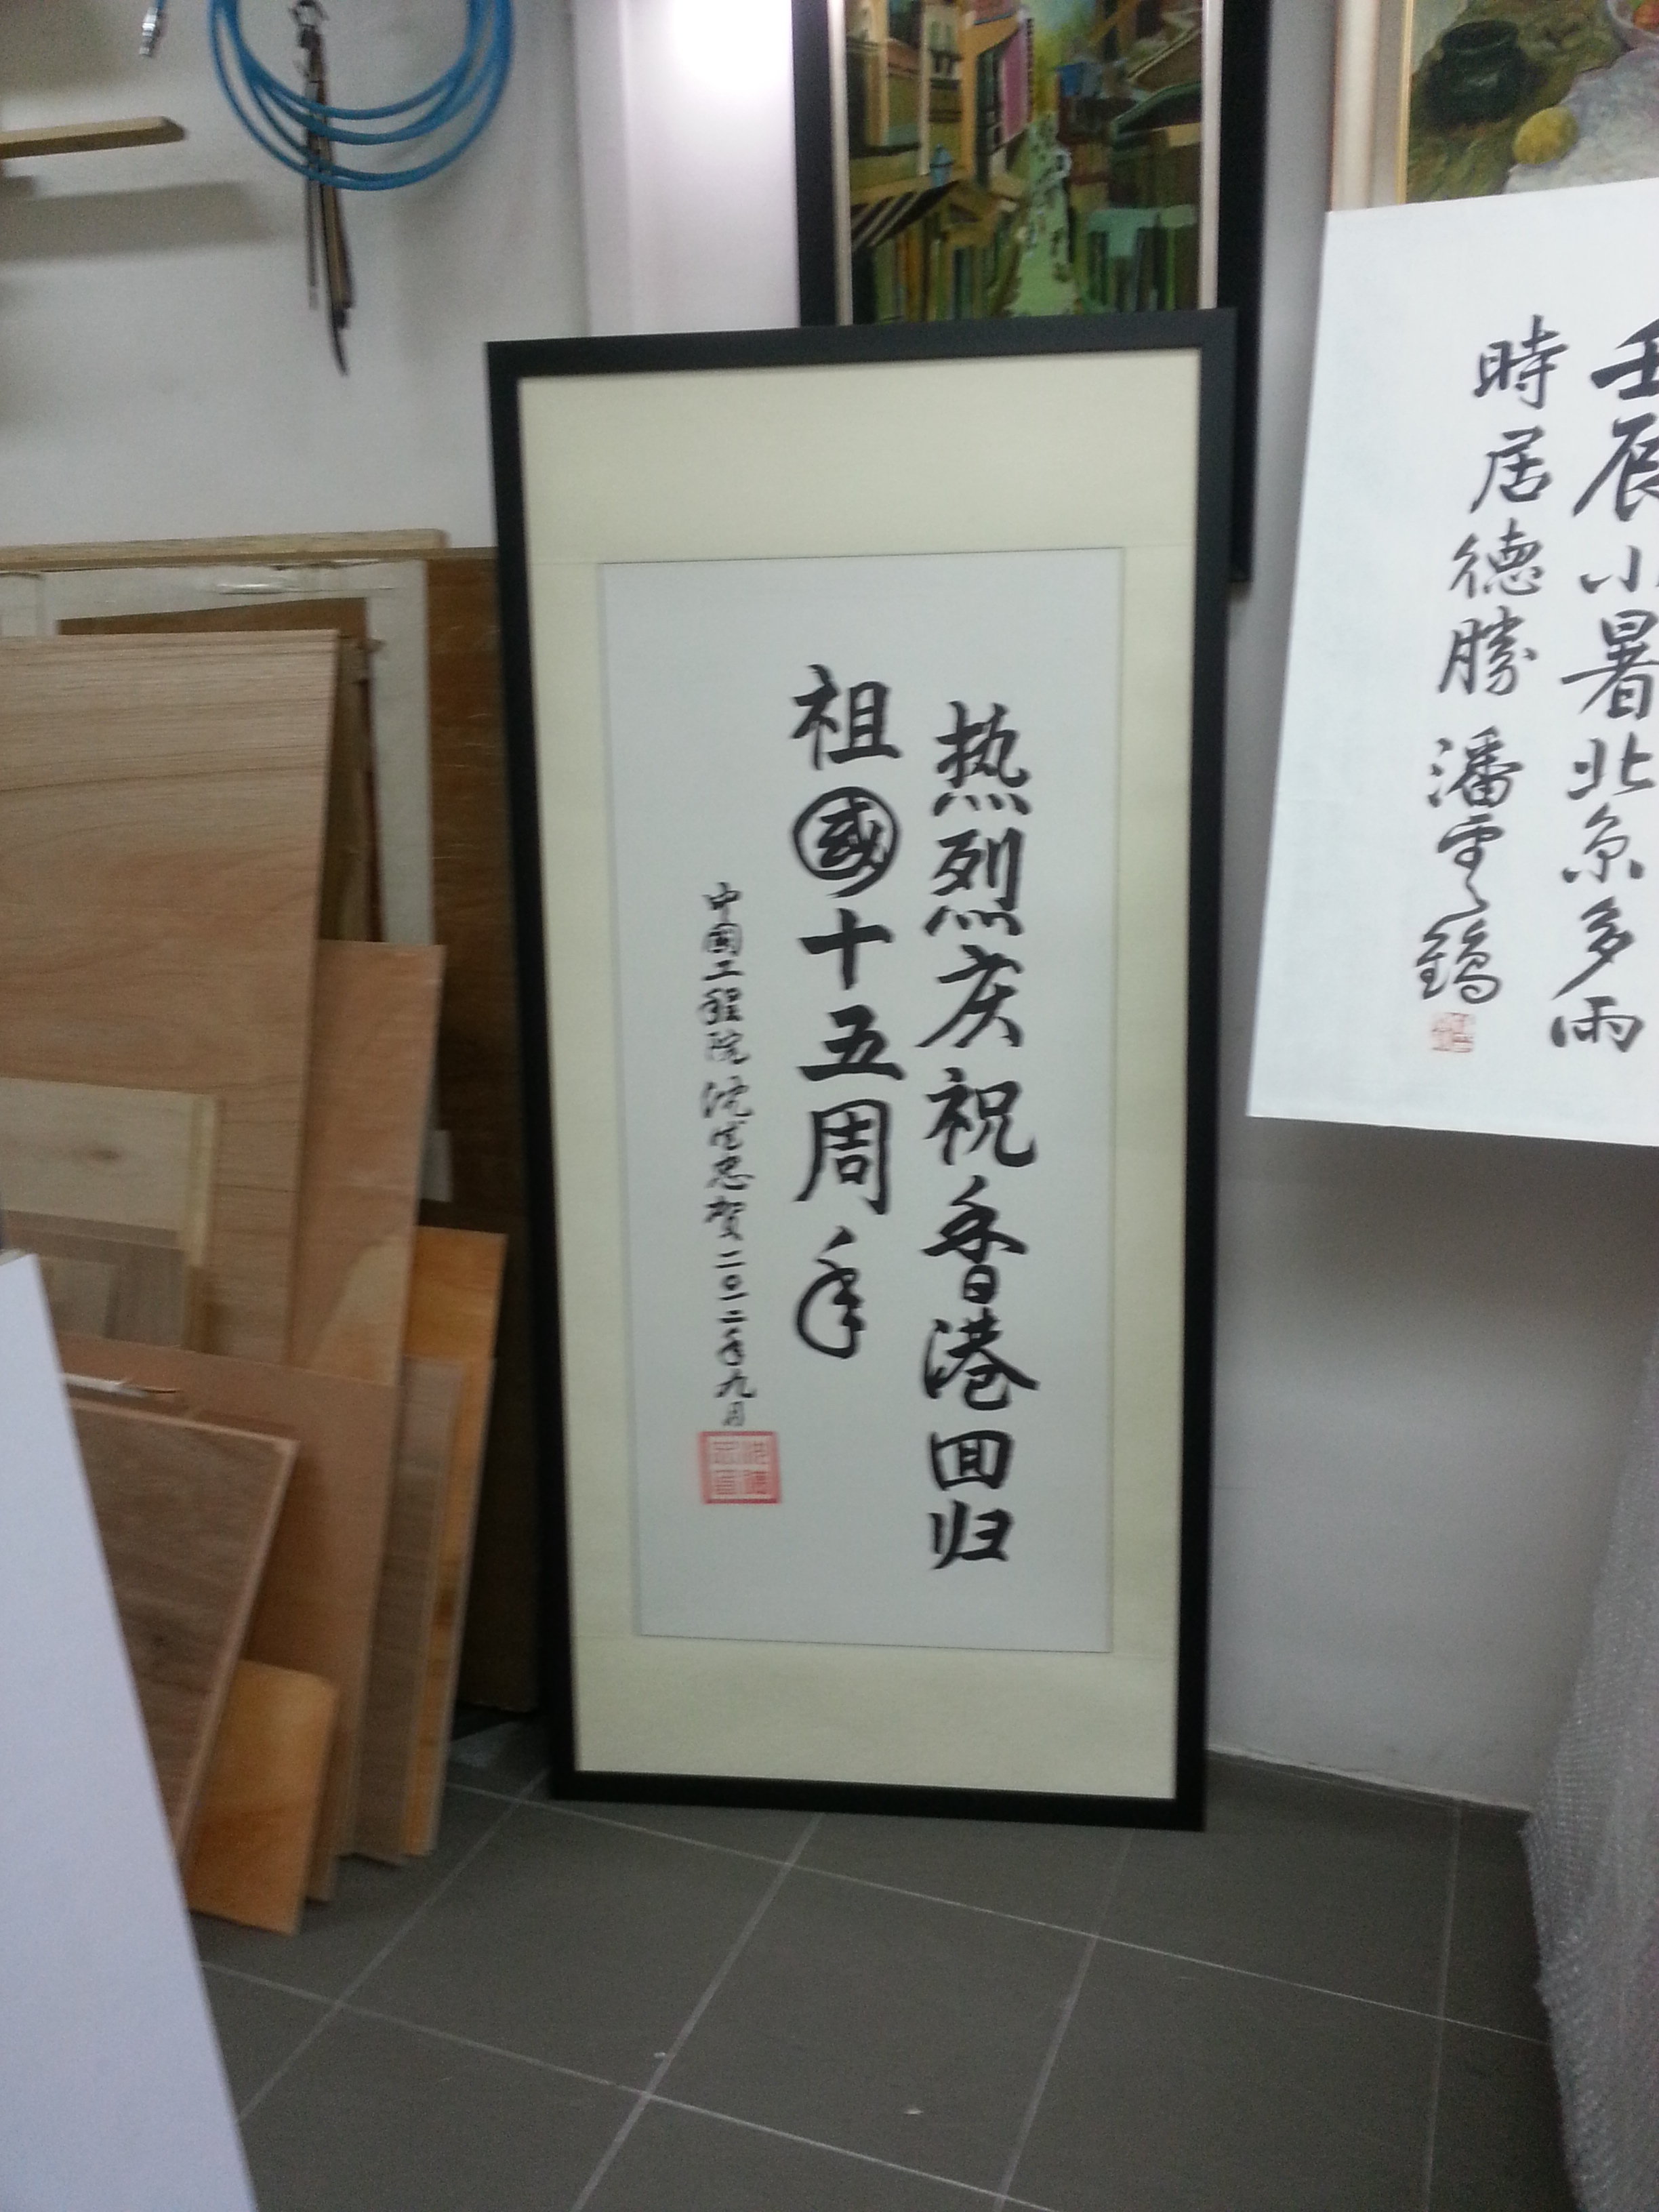 热烈庆祝香港回归
祖國十五周年
中國工程院沈德忠贺二〇一二年九月
壬辰小暑北京多雨
時居德勝潘雲鶴